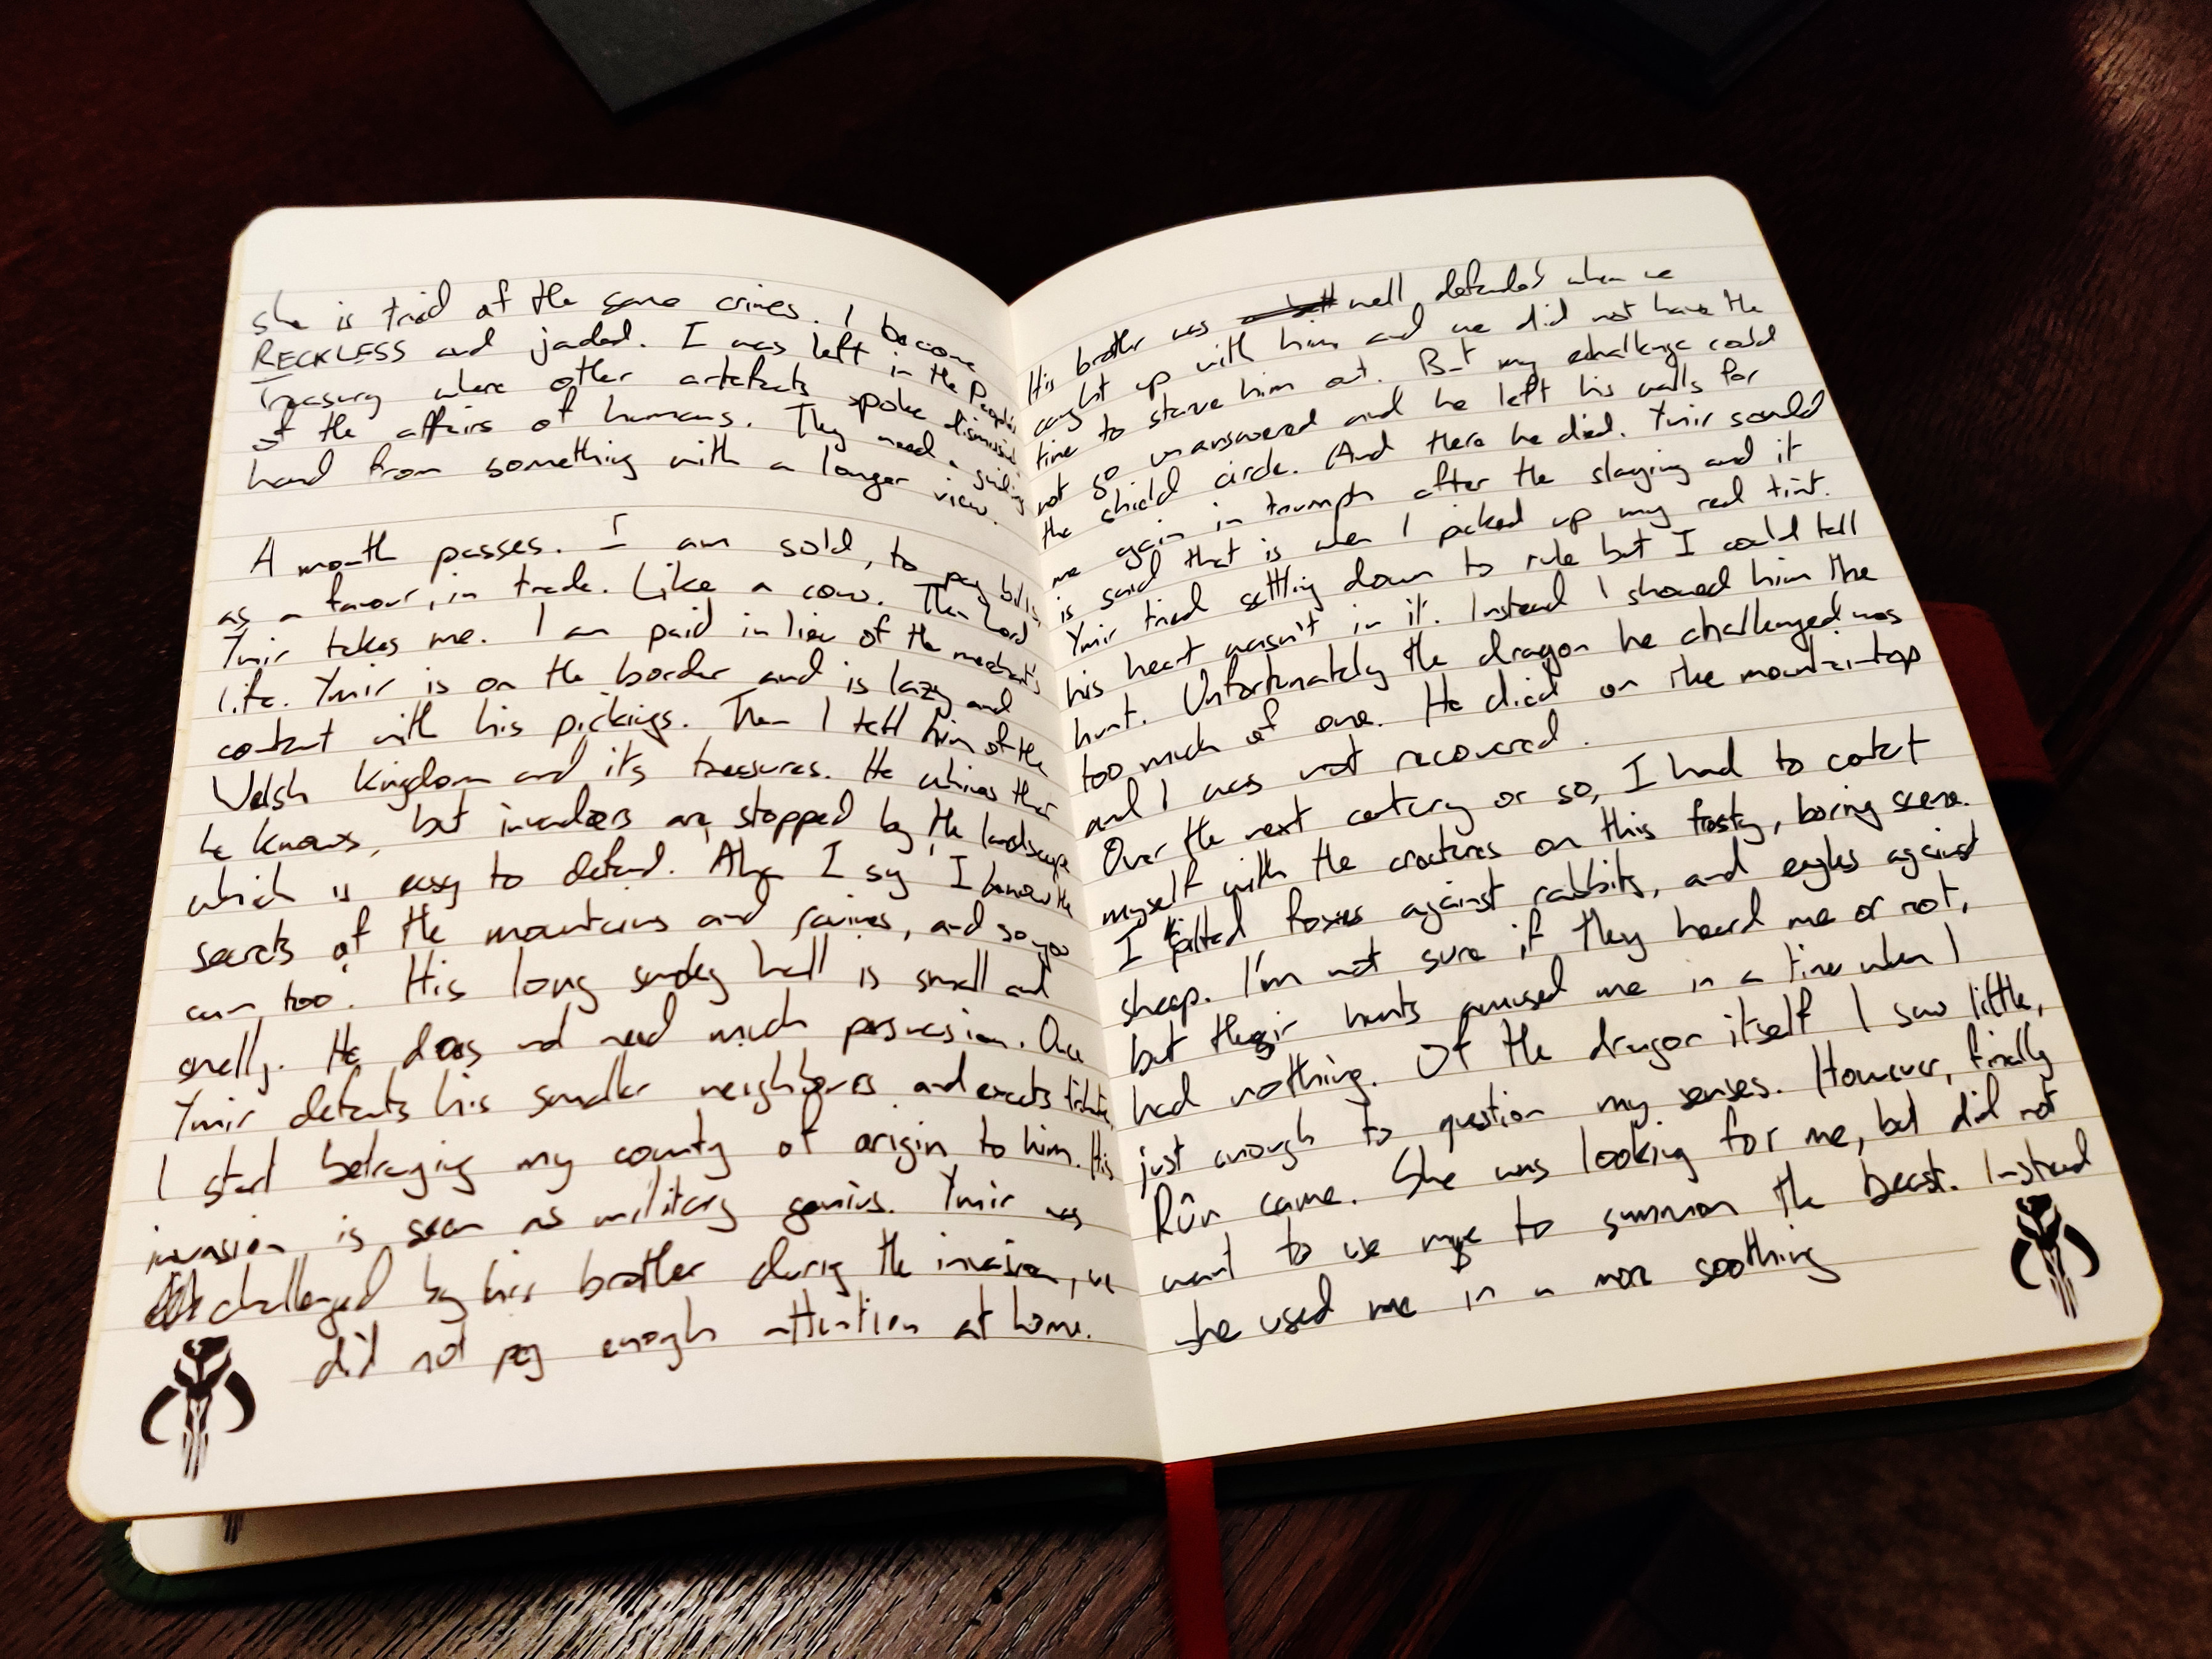 she is tried of the same crimes. I become
RECKLESS and jaded. I was left in the people's
Treasury where other artefacts spoke dismissively
of the affairs of humans. They need a guiding
hand from something with a longer view.
A month passes. I am sold, to pay bills,
as a favour, in trade. Like a cow. Then Lord
Ymir takes me. I am paid in lieu of the merchant's
life. Ymir is on the border and is lazy and
content with his pickings. Then I tell him of the
Welsh kingdom and its treasures. He whines that
he knows, but invaders are stopped by the landscape
which is easy to defend. Aha I say, I know the
secrets of the mountains and ravines, and so you
can too. His long smokey hall is small and
smelly. He does not need much persuasion. Once
Ymir defeats his smaller neighbours and exacts tribute,
I start betraying my county of origin to him. His
invasion is seen as military genius. Ymir was
challenged by his brother during the invasion, we
did not pay enough attention at home.
His brother was well defended when we
caught up with him and we did not have the
time to starve him out. But my challenge could
not go unanswered and he left his walls for
the shield circle. And there he died. Ymir sould
me again in triumph after the slaying and it
is said that is when I picked up my red tint.
Ymir tried settling down to rule but I could tell
his heart wasn't in it. Instead I showed him the
hunt. Unfortunately the dragon he challenged was
too much of one. He died on the mountaintop
and I was not recovered.
Over the next century or so, I had to contect
myself with the creatures on this frosty, boring scene.
I pitted foxes against rabbits, and eagles against
sheep. I'm not sure if they heard me or not,
but their hunts amused me in a time when I
had nothing. Of the dragon itself I saw little,
just enough to question my senses. However, finally
Rûn came. She was looking for me, but did not
want to use me to summon the beast. Instead
she used me in a more soothing